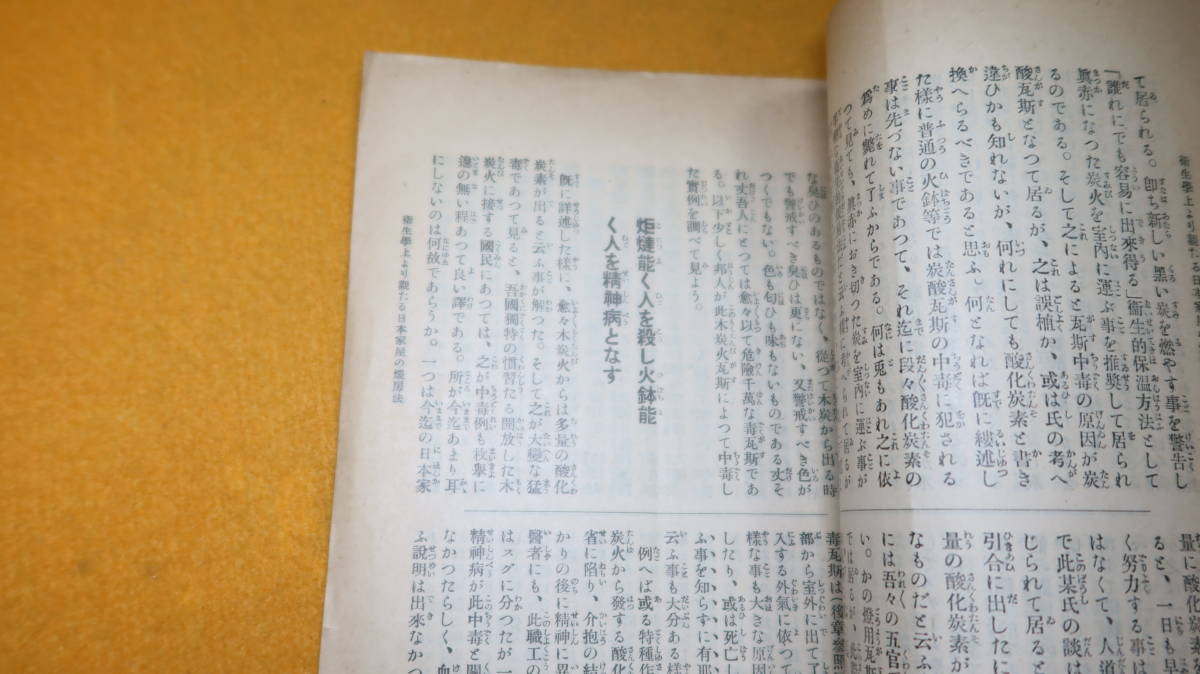 衞生學上より觀たる日本家
て居られる。卽ち新しい黑い炭を燃やす事を警告し
「誰れにでも容易に出來得る」衞生的保溫方法として
眞赤になつた炭火を室內に運ぶ事を推奬して居られ
るのである。そして之によると瓦斯中毒の原因が炭
酸瓦斯となつて居るが、之は誤植か、或は氏の考へ
違ひかも知れないが、何れにしても酸化炭素と書き
換へらるべきであると思ふ。何となれば旣に縷述し
た樣に普通の火鉢等では炭酸瓦斯の中毒に犯される
事は先づない事であつて、それ迄に段々酸化炭素の
爲めに斃れて了ふからである。何は兎もあれ之に依
つて見ても、眞赤におき切つた炭を室內に運ぶ事が
な臭ひのあるものではなく、從つて木炭から出る時
でも警戒すべき臭ひは更にない、又警戒すべき色が
つくでもない。色も匂ひも味もないものである丈そ
れ丈吾人にとつては愈々以て危險千萬な毒瓦斯であ
る。以下少しく邦人が此木炭火瓦斯によつて中毒し
た實例を調べて見よう。
炬燵能く人を殺し火鉢能
く人を精神病となす
旣に詳述した樣に、愈々木炭火からは多量の酸化
炭素が出ると云ふ事が解つた。そして之が大變な猛
毒であつて見ると、吾國獨特の慣習たる開放した木
炭火に接する國民にあつては、之が中毒例も枚擧に
遑の無い程あつて良い譯である。所が今迄あまり耳
にしないのは何故であらうか。一つは今迄の日本家
衞生學上より觀たる日本家屋の煖房法
ると、一日も早
く努力する事は
はなくて、人道
で此某氏の談は
じられて居ると
引合に出したに
量の酸化炭素が
なものだと云ふ
には吾々の五官
い。かの燈用瓦斯
毒瓦斯は(後章參照
部から室外に出て了
入する外氣に依つて
樣な事も大きな原因
したり、或は死亡し
ふ事を知らずに有耶
云ふ事も大分ある樣
例へば或る特種作
炭火から發する酸化
省に陷り、介抱の結
かりの後に精神に異
醫者にも、此職工の
はスグに分つたが一
精神病が此中毒と關
なかつたらしく、血
ふ說明は出來なかつ